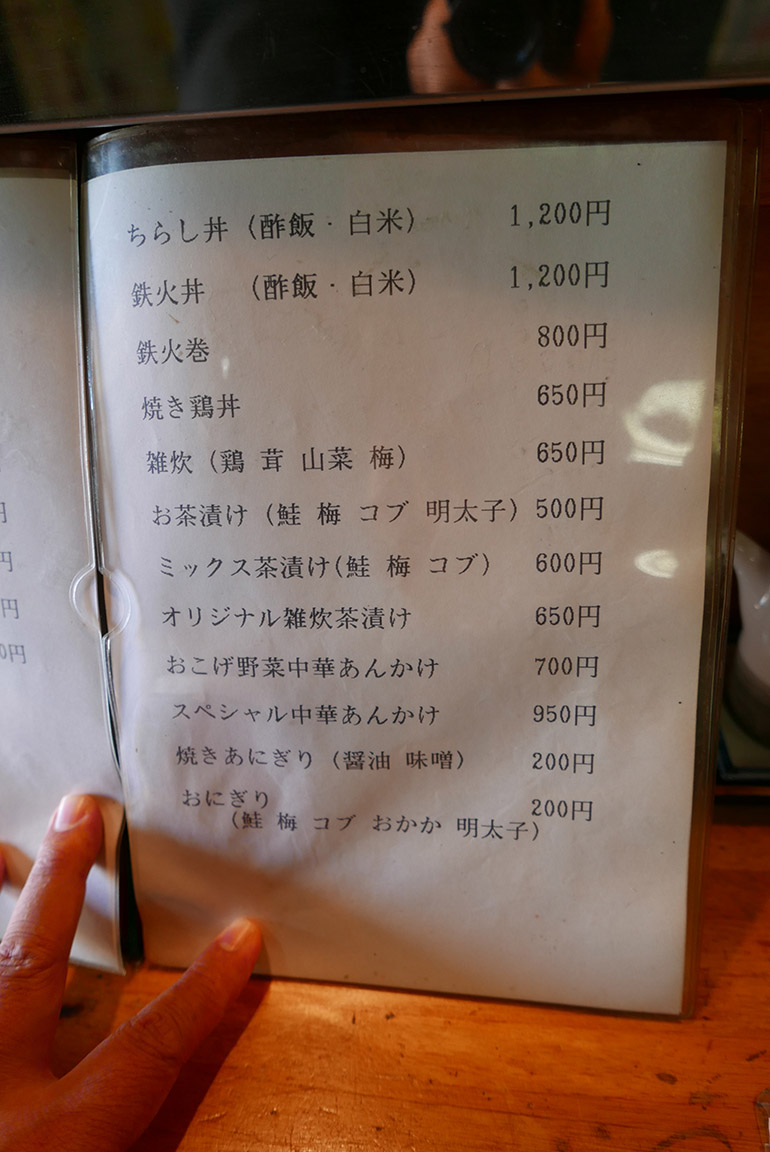 ちらし丼 (酢飯・白米) 1,200円
鉄火丼 (酢飯・白米) 1,200円
鉄火巻 800円
焼き鶏丼 650円
雑炊 (鶏 茸 山菜 梅) 650円
お茶漬け (鮭 梅 コブ 明太子) 500円
ミックス茶漬け(鮭 梅 コブ) 600円
オリジナル雑炊茶漬け 650円
おこげ野菜中華あんかけ 700円
スペシャル中華あんかけ 950円
焼きあにぎり (醤油 味噌) 200円
おにぎり 200円
(鮭 梅 コブ おかか 明太子)
円
円
円
0円